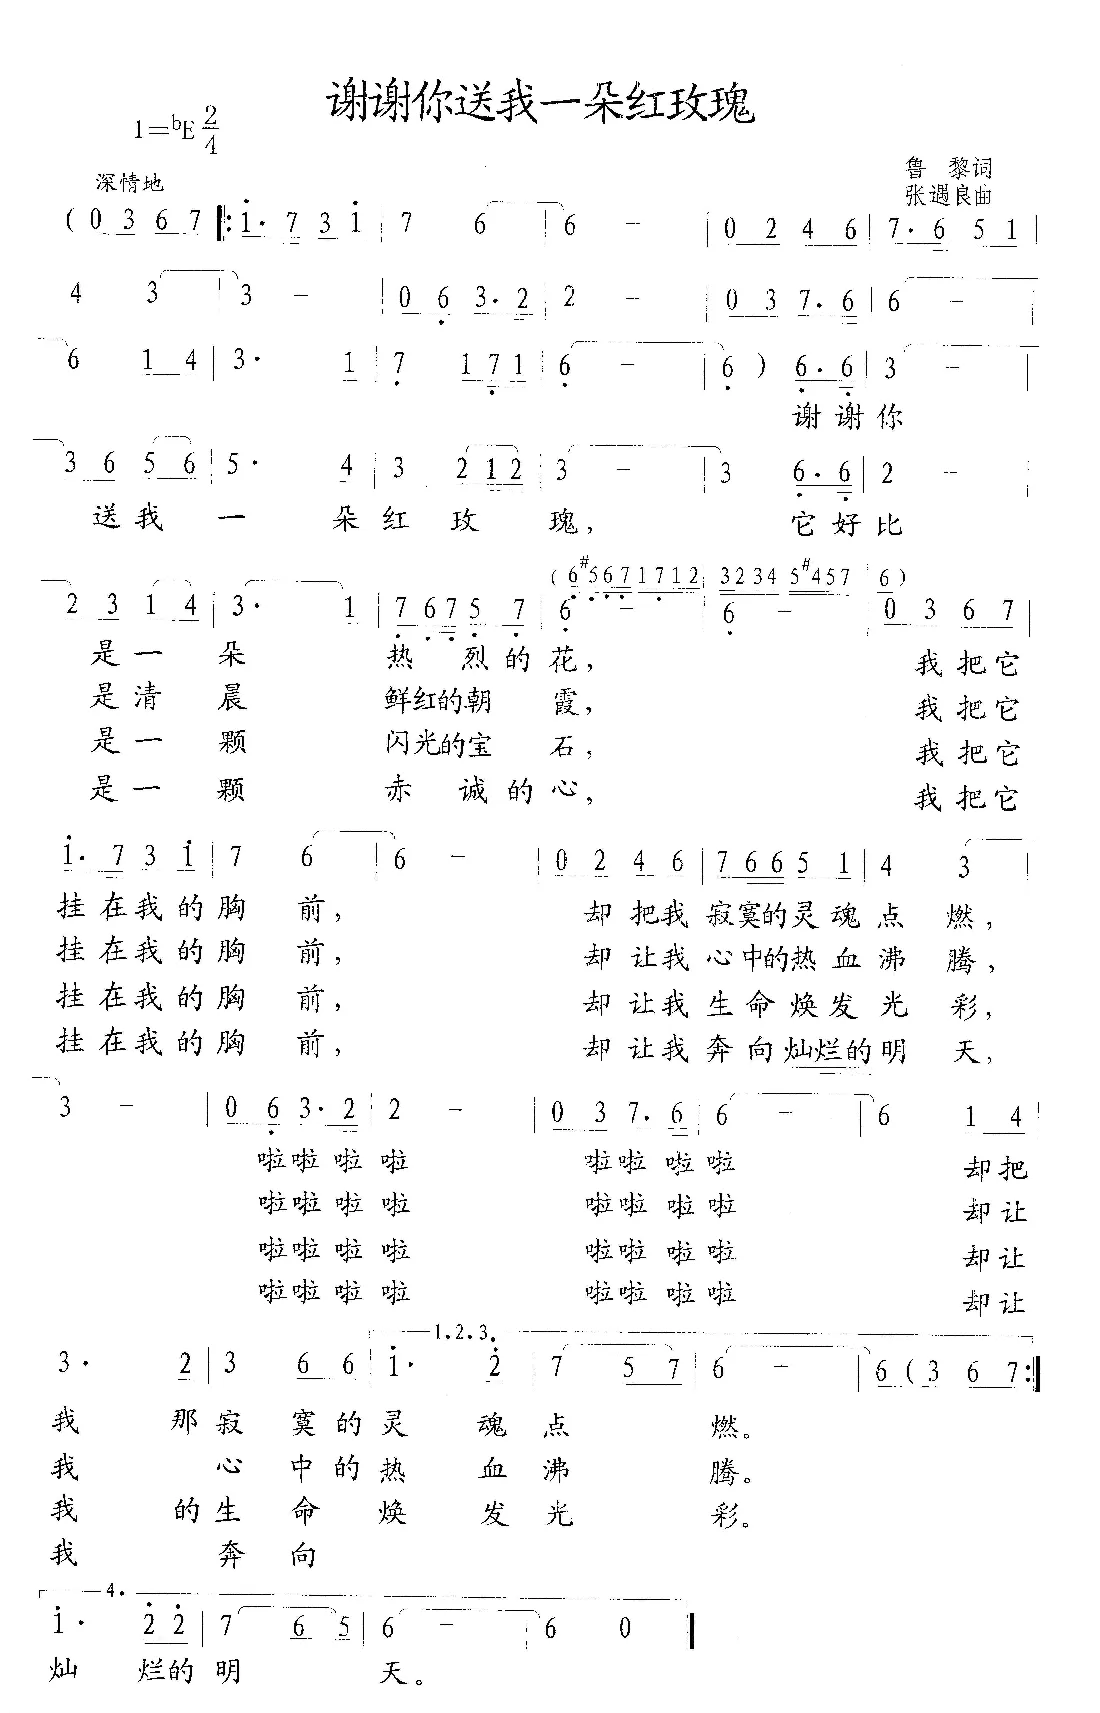 谢谢你送我一朵红玫瑰
1=ᵇE 2/4
鲁 黎词
深情地
张遇良曲
( 0 3 6 7 ‖: 1· 7 3 1 | 7 6 | 6 - | 0 2 4 6 | 7· 6 5 1 |
4 3 | 3 - | 0 6 3· 2 | 2 - | 0 3 7· 6 | 6 - |
6 1 4 | 3· 1 | 7 1 7 1 | 6 - | 6 ) 6· 6 | 3 - |
谢 谢 你
3 6 5 6 | 5· 4 | 3 2 1 2 | 3 - | 3 6· 6 | 2 - |
送 我 一 朵 红 玫 瑰, 它 好 比
( 6 #5 6 7 1 7 1 2 | 3 2 3 4 5 #4 5 7 | 6 )
2 3 1 4 | 3· 1 | 7 6 7 5 7 | 6 - | 6 - | 0 3 6 7 |
是 一 朵 热 烈 的 花, 我 把 它
是 清 晨 鲜红的朝 霞, 我 把 它
是 一 颗 闪光的宝 石, 我 把 它
是 一 颗 赤 诚 的 心, 我 把 它
1· 7 3 1 | 7 6 | 6 - | 0 2 4 6 | 7 6 6 5 1 | 4 3 |
挂 在 我 的 胸 前, 却 把 我 寂寞的灵 魂 点 燃,
挂 在 我 的 胸 前, 却 让 我 心 中的热 血 沸 腾,
挂 在 我 的 胸 前, 却 让 我 生 命 焕 发 光 彩,
挂 在 我 的 胸 前, 却 让 我 奔 向 灿烂的 明 天,
3 - | 0 6 3· 2 | 2 - | 0 3 7· 6 | 6 - | 6 1 4 |
啦 啦 啦 啦 啦 啦 啦 啦 却 把
啦 啦 啦 啦 啦 啦 啦 啦 却 让
啦 啦 啦 啦 啦 啦 啦 啦 却 让
啦 啦 啦 啦 啦 啦 啦 啦 却 让
1.2.3.
3· 2 | 3 6 6 | 1· 2 | 7 5 7 | 6 - | 6 ( 3 6 7 :‖
我 那 寂 寞 的 灵 魂 点 燃。
我 心 中 的 热 血 沸 腾。
我 的 生 命 焕 发 光 彩。
我 奔 向
4.
1· 2 2 | 7 6 5 | 6 - | 6 0 ‖
灿 烂的 明 天。